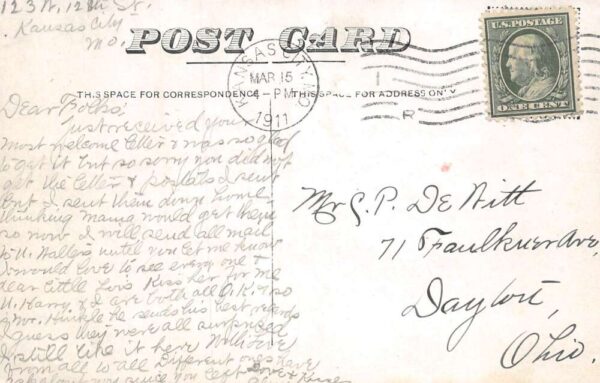 123 W. 12th St.
Kansas City
Mo.
POST CARD
U.S. POSTAGE
ONE CENT
KANSAS CITY, MO.
MAR 15
4-PM
1911
1
R
THIS SPACE FOR CORRESPONDENCE
THIS SPACE FOR ADDRESS ONLY
Dear Folks:
just received your
most welcome letter & was so glad
to get it but so sorry you did not
get the letter & postals I sent
but I sent them home
thinking mama would get them
so now I will send all mail
to U. until you let me know
I would love to see every one &
dear little Lois Kiss her for me
U. Harry & I are both all O.K. & so
is Mr. Hinkle he sends his best regards
I guess they were all surprised
I still like it here With love
from all to all Different ones have
since you left Love & Kisses
Mr G. P. DeWitt
71 Faulkner Ave,
Dayton,
Ohio.